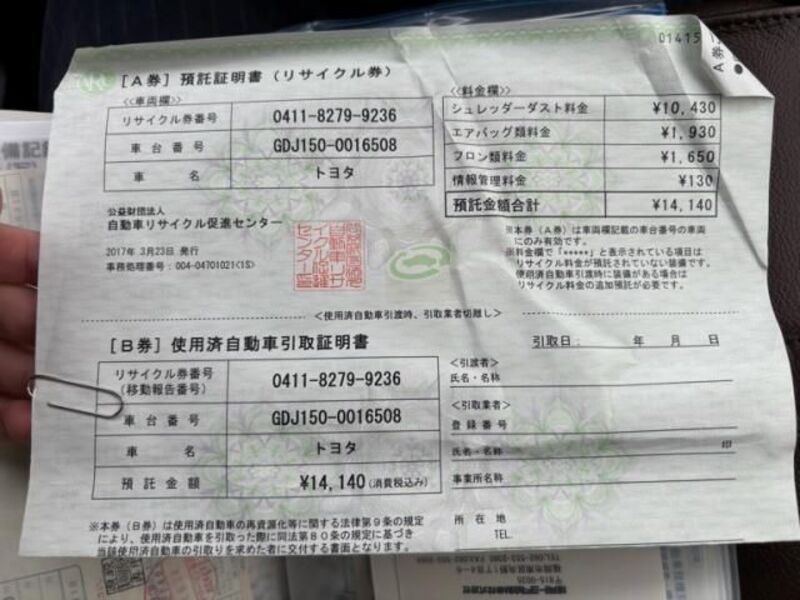 01415
A券
[A券] 預託証明書 (リサイクル券)
<<車両欄>>
リサイクル券番号 0411-8279-9236
車台番号 GDJ150-0016508
車名 トヨタ
公益財団法人
自動車リサイクル促進センター
2017年 3月23日 発行
事務処理番号:004-04701021<1S>
<<料金欄>>
シュレッダーダスト料金 ¥10,430
エアバッグ類料金 ¥1,930
フロン類料金 ¥1,650
情報管理料金 ¥130
預託金額合計 ¥14,140
※本券(A券)は車両欄記載の車台番号の車両
にのみ有効です。
※料金欄で「*****」と表示されている項目は
リサイクル料金が預託されていない装備です。
使用済自動車引渡時に装備がある場合は
リサイクル料金の追加預託が必要です。
<使用済自動車引渡時、引取業者切離し>
[B券] 使用済自動車引取証明書
リサイクル券番号
(移動報告番号) 0411-8279-9236
車台番号 GDJ150-0016508
車名 トヨタ
預託金額 ¥14,140(消費税込み)
※本券(B券)は使用済自動車の再資源化等に関する法律第9条の規定
により、使用済自動車を引取った際に同法第80条の規定に基づき
当該使用済自動車の引取りを求めた者に交付する書面となります。
引取日: 年 月 日
<引渡者>
氏名・名称
<引取業者>
登録番号
氏名・名称 印
事業所名称
所在地
TEL.